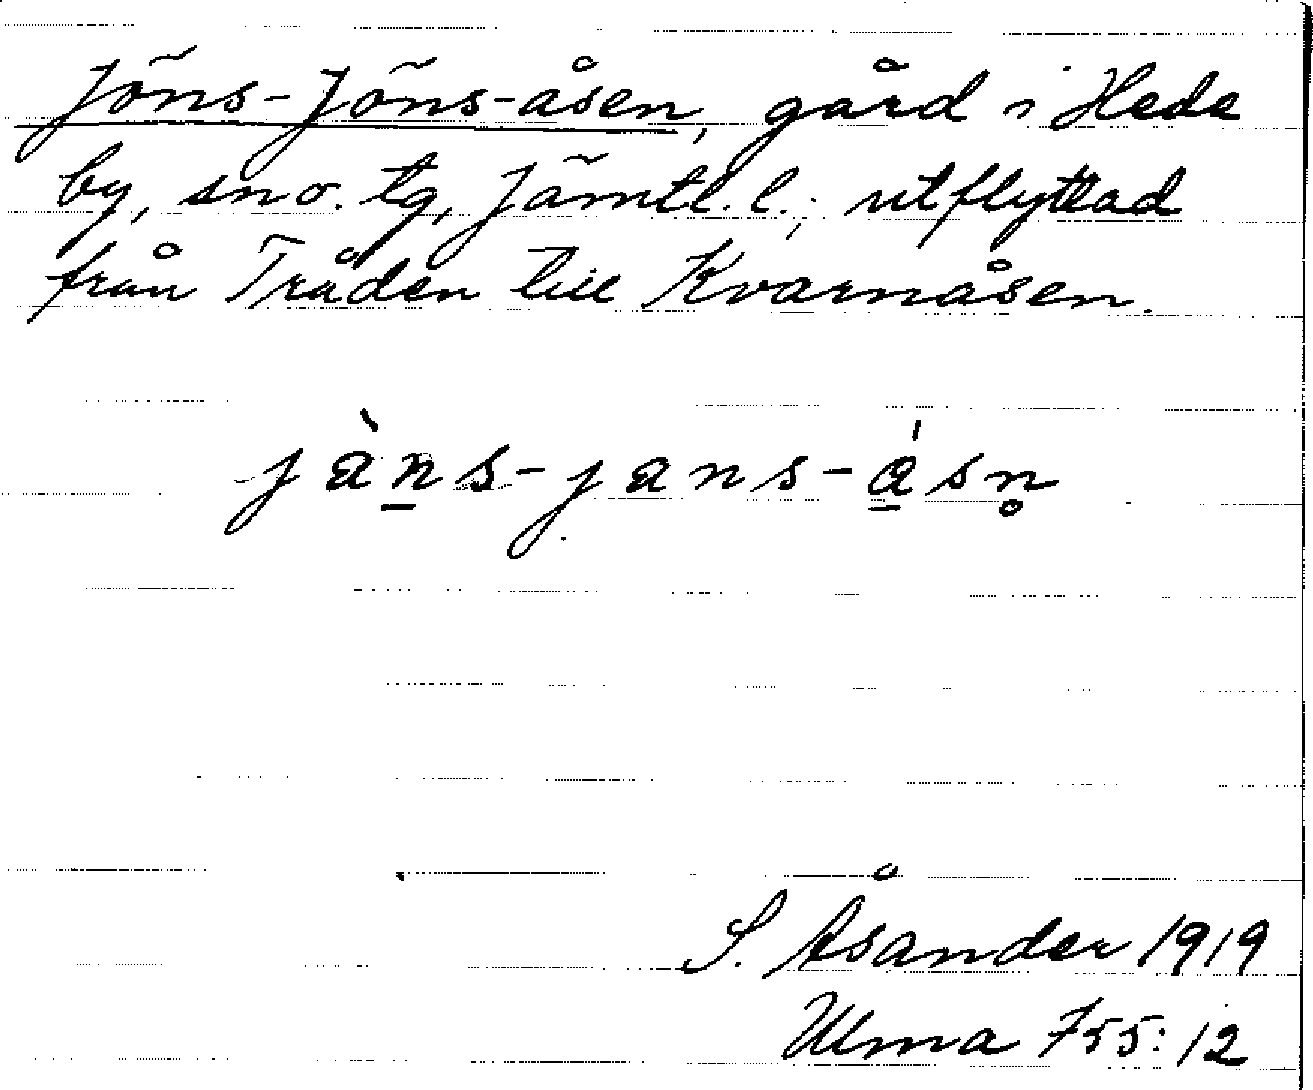 Jöns-Jöns-åsen, gård i Hede
by, sn o. tg, Jämtl. l.; utflyttad
från Tråden till Kvarnåsen.
jàn̲s-jans-á̲sn̥
S. Åsander 1919
Ulma 755:12